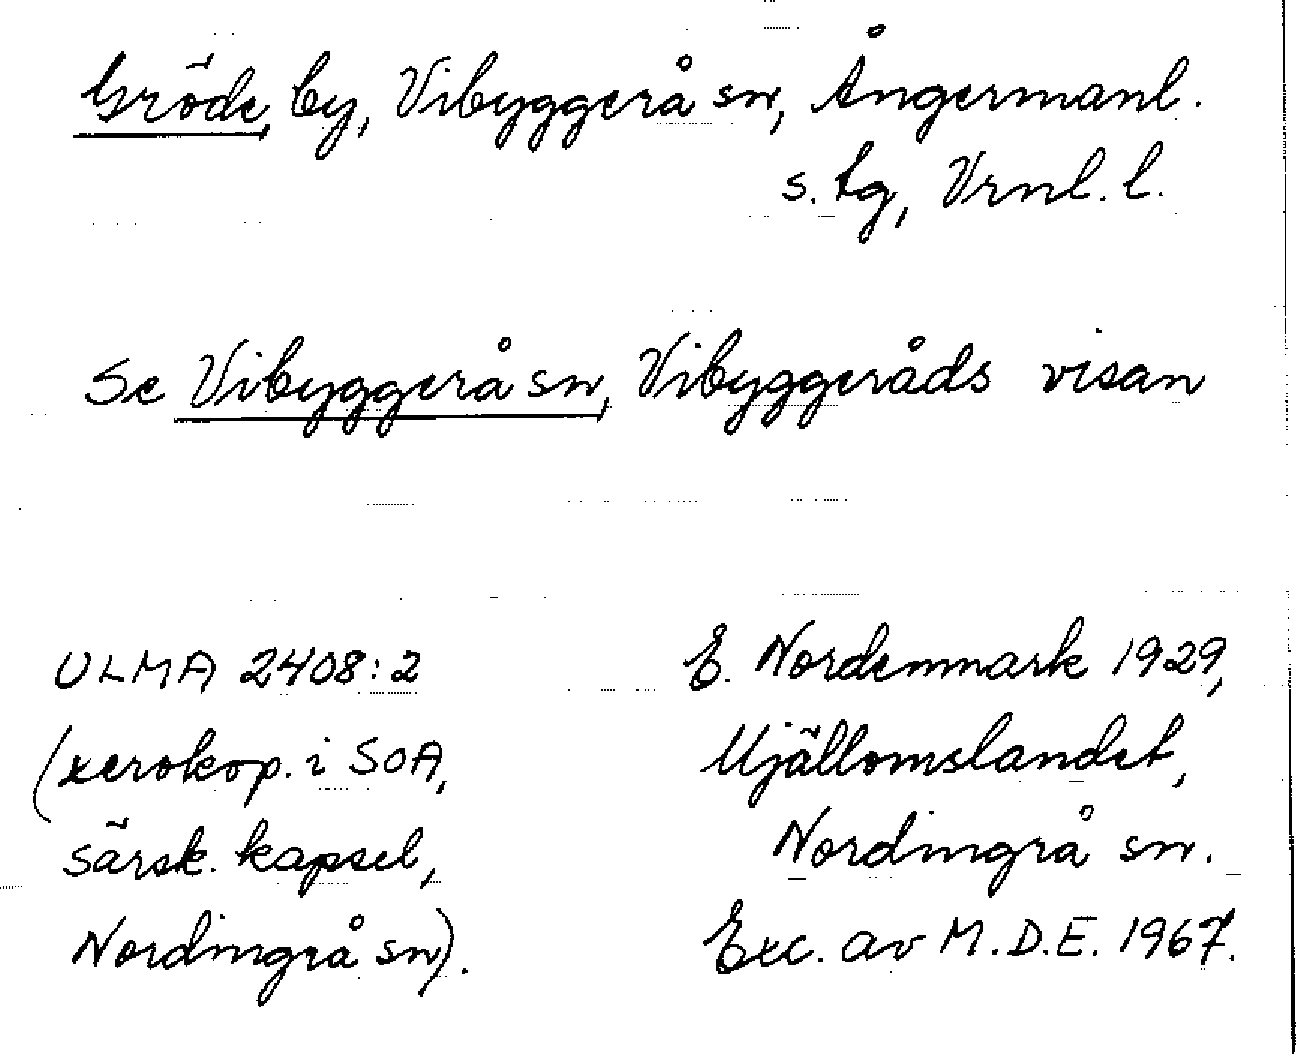 Gröde, by, Vibyggerå sn, Ångermanl.
s. tg, Vrnl. l.
Se Vibyggerå sn, Vibyggeråds visan
ULMA 2408:2
(xerokop. i SOA,
särsk. kapsel,
Nordingrå sn).
E. Nordenmark 1929,
Mjällomslandet,
Nordingrå sn.
Exc. av M.D.E. 1967.